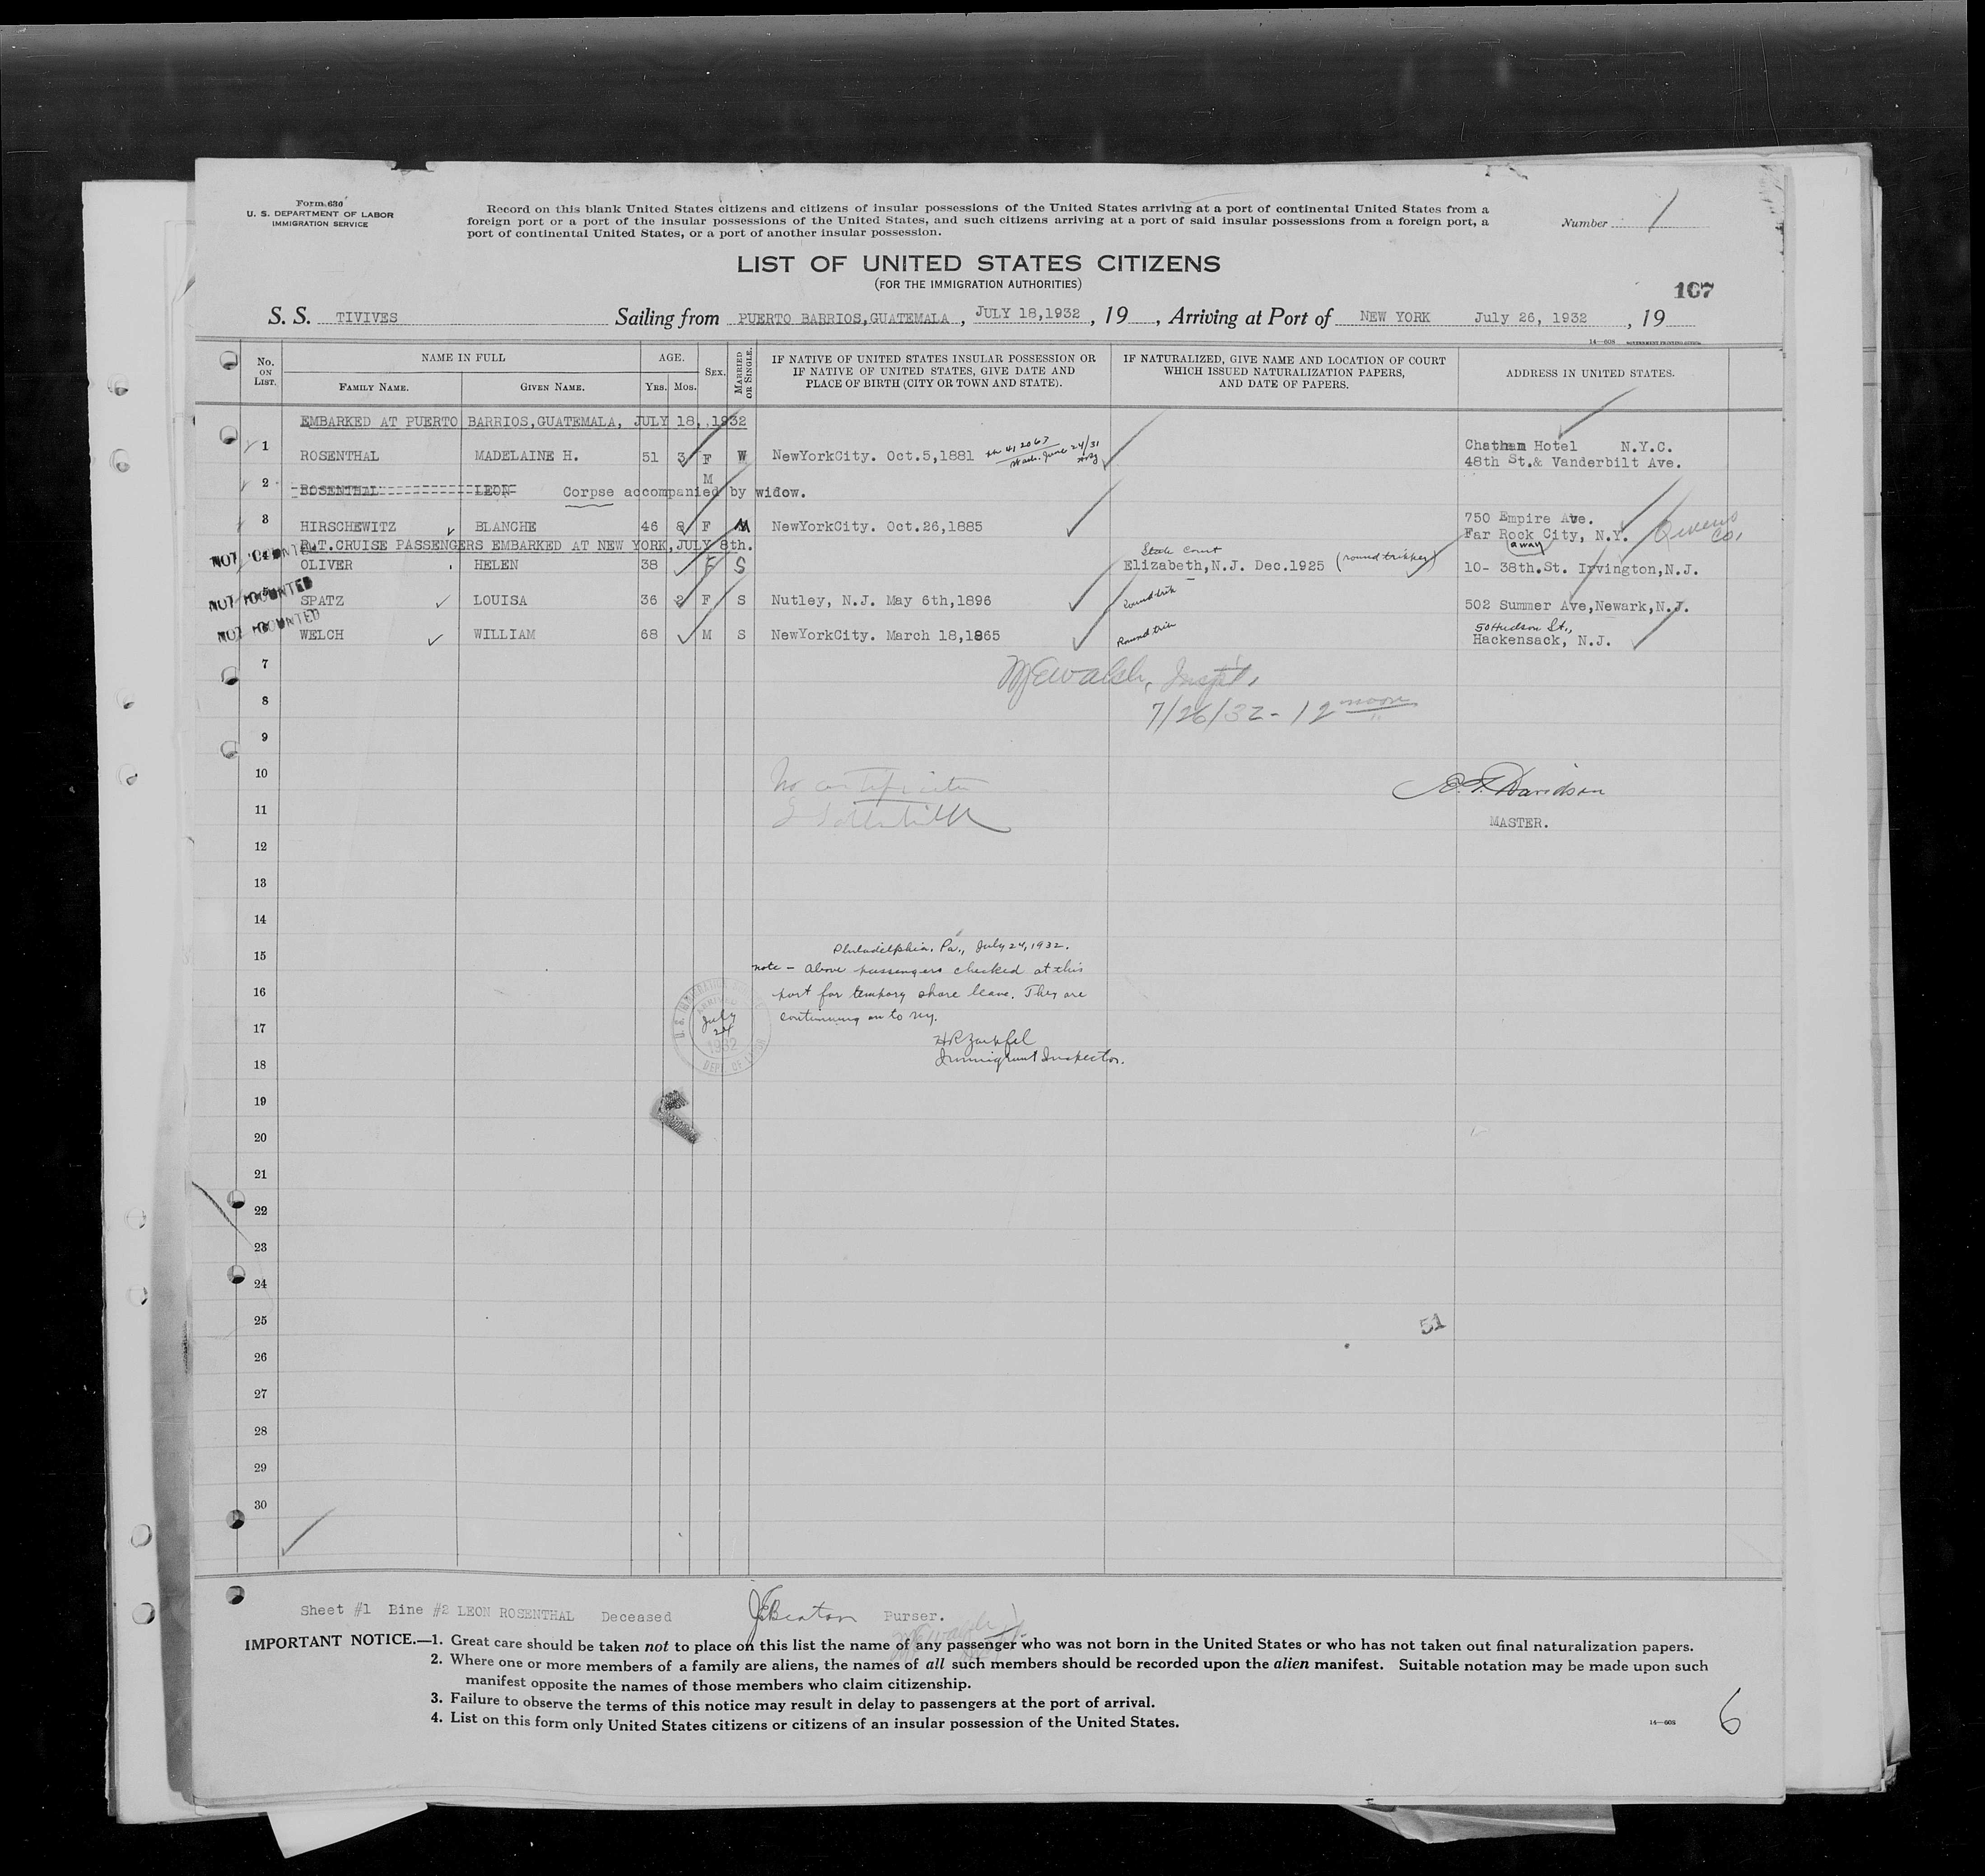 Form 630
U. S. DEPARTMENT OF LABOR
IMMIGRATION SERVICE
Record on this blank United States citizens and citizens of insular possessions of the United States arriving at a port of continental United States from a
foreign port or a port of the insular possessions of the United States, and such citizens arriving at a port of said insular possessions from a foreign port, a
port of continental United States, or a port of another insular possession.
Number 1
LIST OF UNITED STATES CITIZENS
(FOR THE IMMIGRATION AUTHORITIES)
167
S. S. TIVIVES Sailing from PUERTO BARRIOS,GUATEMALA , JULY 18,1932 , 19 , Arriving at Port of NEW YORK July 26, 1932 , 19
14—608 GOVERNMENT PRINTING OFFICE
No. ON LIST.
NAME IN FULL
FAMILY NAME. GIVEN NAME.
AGE.
YRS. MOS.
SEX.
MARRIED OR SINGLE.
IF NATIVE OF UNITED STATES INSULAR POSSESSION OR
IF NATIVE OF UNITED STATES, GIVE DATE AND
PLACE OF BIRTH (CITY OR TOWN AND STATE).
IF NATURALIZED, GIVE NAME AND LOCATION OF COURT
WHICH ISSUED NATURALIZATION PAPERS,
AND DATE OF PAPERS.
ADDRESS IN UNITED STATES.
EMBARKED AT PUERTO BARRIOS,GUATEMALA, JULY 18, 1932
1 ROSENTHAL MADELAINE H. 51 3 F W NewYorkCity. Oct.5,1881 Wash. June 24/31 Chatham Hotel N.Y.C.
48th St.& Vanderbilt Ave.
2 ROSENTHAL LEON M Corpse accompanied by widow.
3 HIRSCHEWITZ BLANCHE 46 8 F M NewYorkCity. Oct.26,1885 750 Empire Ave.
Far Rock City, N.Y. Queens Co.
away
R.T.CRUISE PASSENGERS EMBARKED AT NEW YORK,JULY 8th.
NOT COUNTED
OLIVER HELEN 38 F S State Court
Elizabeth,N.J. Dec.1925 (round tripper) 10- 38th.St. Irvington,N.J.
NOT COUNTED
SPATZ LOUISA 36 2 F S Nutley, N.J. May 6th,1896 Round trip 502 Summer Ave,Newark,N.J.
NOT COUNTED
WELCH WILLIAM 68 M S NewYorkCity. March 18,1865 Round trip 50 Hudson St.,
Hackensack, N.J.
7
McWalsh, Inspt.
8
7/26/32 - 12 noon
9
10
No certificates
E. T. Davidson
11
MASTER.
12
13
14
Philadelphia, Pa., July 24, 1932.
15
note - above passengers checked at this
16
port for tempory shore leave. They are
continuing on to ny.
17
U. S. IMMIGRATION SERVICE
ARRIVED
July
24
1932
DEPT. OF LABOR
Immigrant Inspector.
18
19
20
21
22
23
24
25
51
26
27
28
29
30
Sheet #1 Bine #2 LEON ROSENTHAL Deceased Purser.
IMPORTANT NOTICE.—1. Great care should be taken not to place on this list the name of any passenger who was not born in the United States or who has not taken out final naturalization papers.
2. Where one or more members of a family are aliens, the names of all such members should be recorded upon the alien manifest. Suitable notation may be made upon such
manifest opposite the names of those members who claim citizenship.
3. Failure to observe the terms of this notice may result in delay to passengers at the port of arrival.
4. List on this form only United States citizens or citizens of an insular possession of the United States.
14—608
6